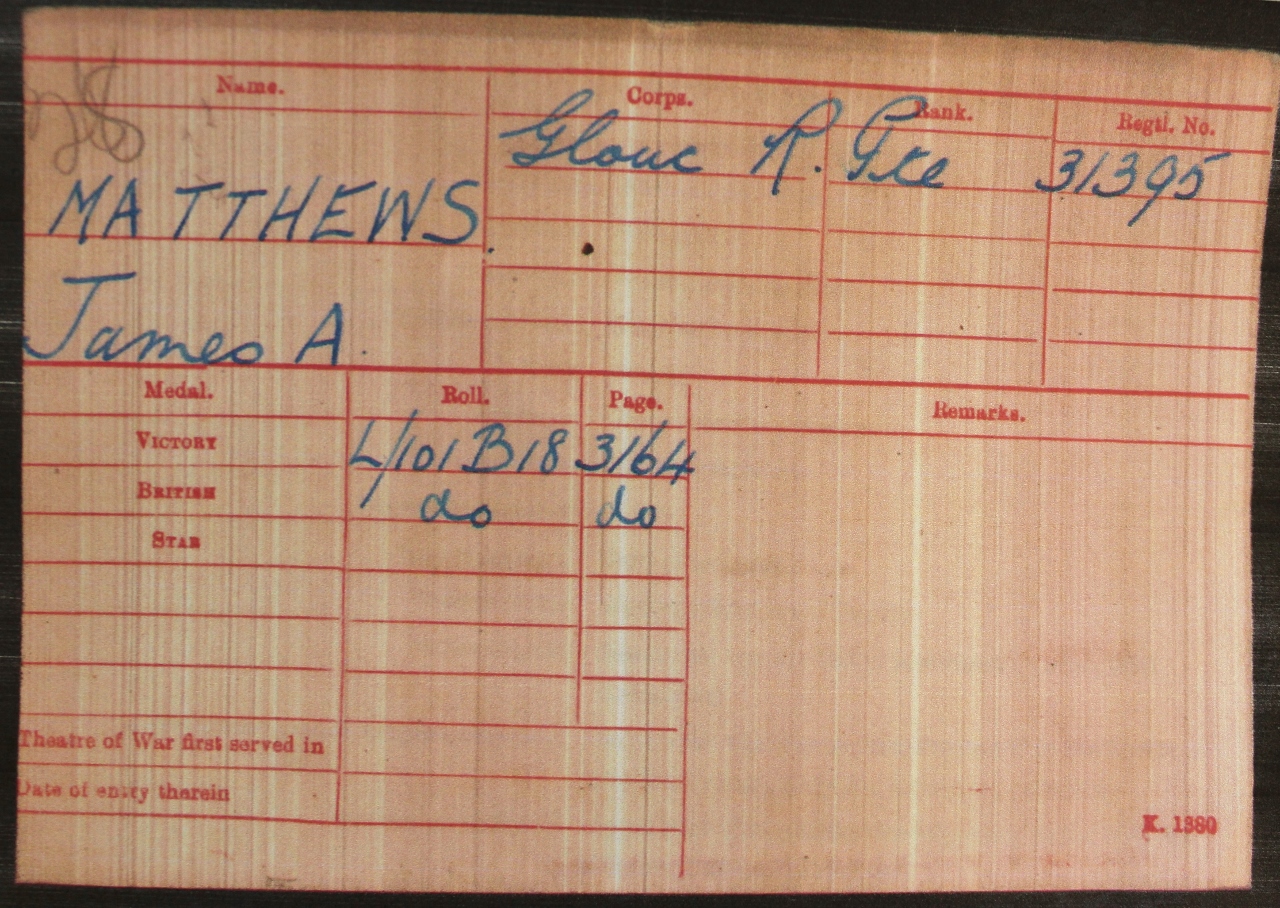 Name. Corps. Rank. Regtl. No.
Glouc R. Pte 31395
MATTHEWS.
James A.
Medal. Roll. Page. Remarks.
VICTORY L/101B18 3164
BRITISH do do
STAR
Theatre of War first served in
Date of entry therein
K. 1380